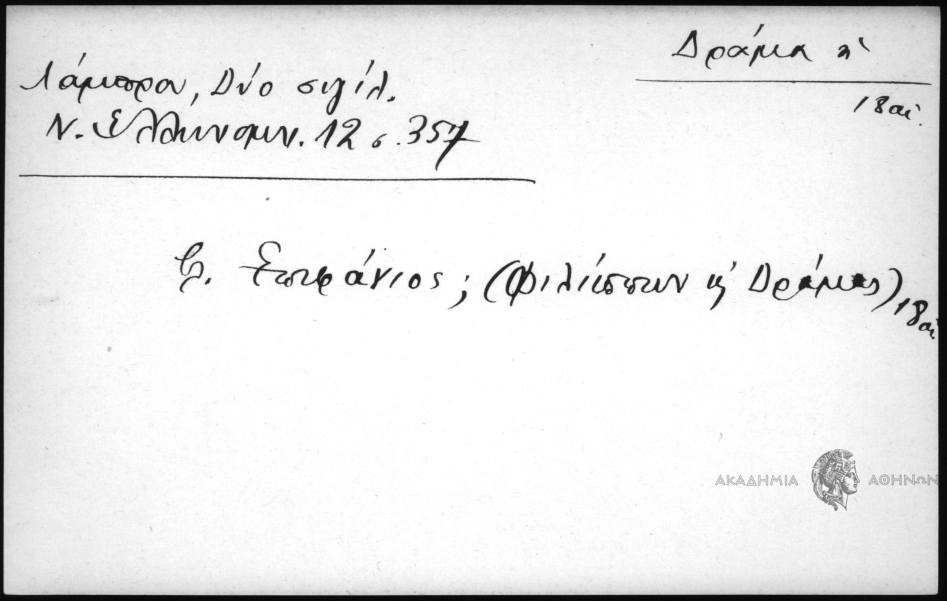 Δράμα
18 αἰ.
Λάμπρου, Δύο σιγίλ.
Ν. Ἑλληνομν. 12 σ. 357
(Φιλίππων κ Δράμας) 18 αἰ
ΑΚΑΔΗΜΙΑ ΑΘΗΝΩΝ